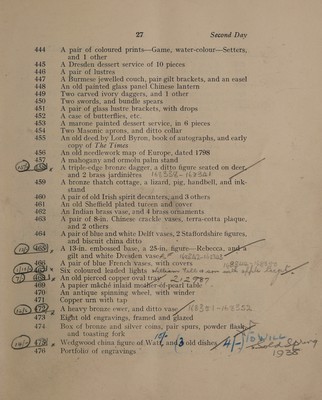 27 Second Day
444 A pair of coloured prints—Game, water-colour—Setters,
and 1 other
445 A Dresden dessert service of 10 pieces
446 A pair of lustres
447 A Burmese jewelled couch, pair gilt brackets, and an easel
448 An old painted glass panel Chinese lantern
449 Two carved ivory daggers, and 1 other
450 Two swords, and bundle spears
451 A pair of glass lustre brackets, with drops
452 A case of butterflies, etc.
453 A marone painted dessert service, in 6 pieces
454 Two Masonic aprons, and ditto collar
455 An old deed by Lord Byron, book of autographs, and early
copy of The Times
456 An old needlework map of Europe, dated 1798
457 A mahogany and ormolu palm stand
458 A triple-edge bronze dagger, a ditto figure seated on deer,
and 2 brass jardinières
459 A bronze thatch cottage, a lizard, pig, handbell, and ink-
stand
460 A pair of old Irish spirit decanters, and 3 others
461 An old Sheffield plated tureen and cover
462 An Indian brass vase, and 4 brass ornaments
463 A pair of 8-in. Chinese crackle vases, terra-cotta plaque,
and 2 others
464 A pair of blue and white Delft vases, 2 Staffordshire figures,
and biscuit china ditto
465 A 13-in. embossed base, a 25-in. figure—Rebecca, and a
gilt and white Dresden vase
466 A pair of blue French vases, with covers
467 Six coloured leaded lights
468 An old pierced copper oval tray
469 A papier mâché inlaid mother-of-pearl table
470 An antique spinning wheel, with winder
471 Copper urn with tap
472 A heavy bronze ewer, and ditto vase
473 Eight old engravings, framed and glazed
474 Box of bronze and silver coins, pair spurs, powder flask,
and toasting fork
475 Wedgwood china figure of Watt, and 3 old dishes
476 Portfolio of engravings
1938